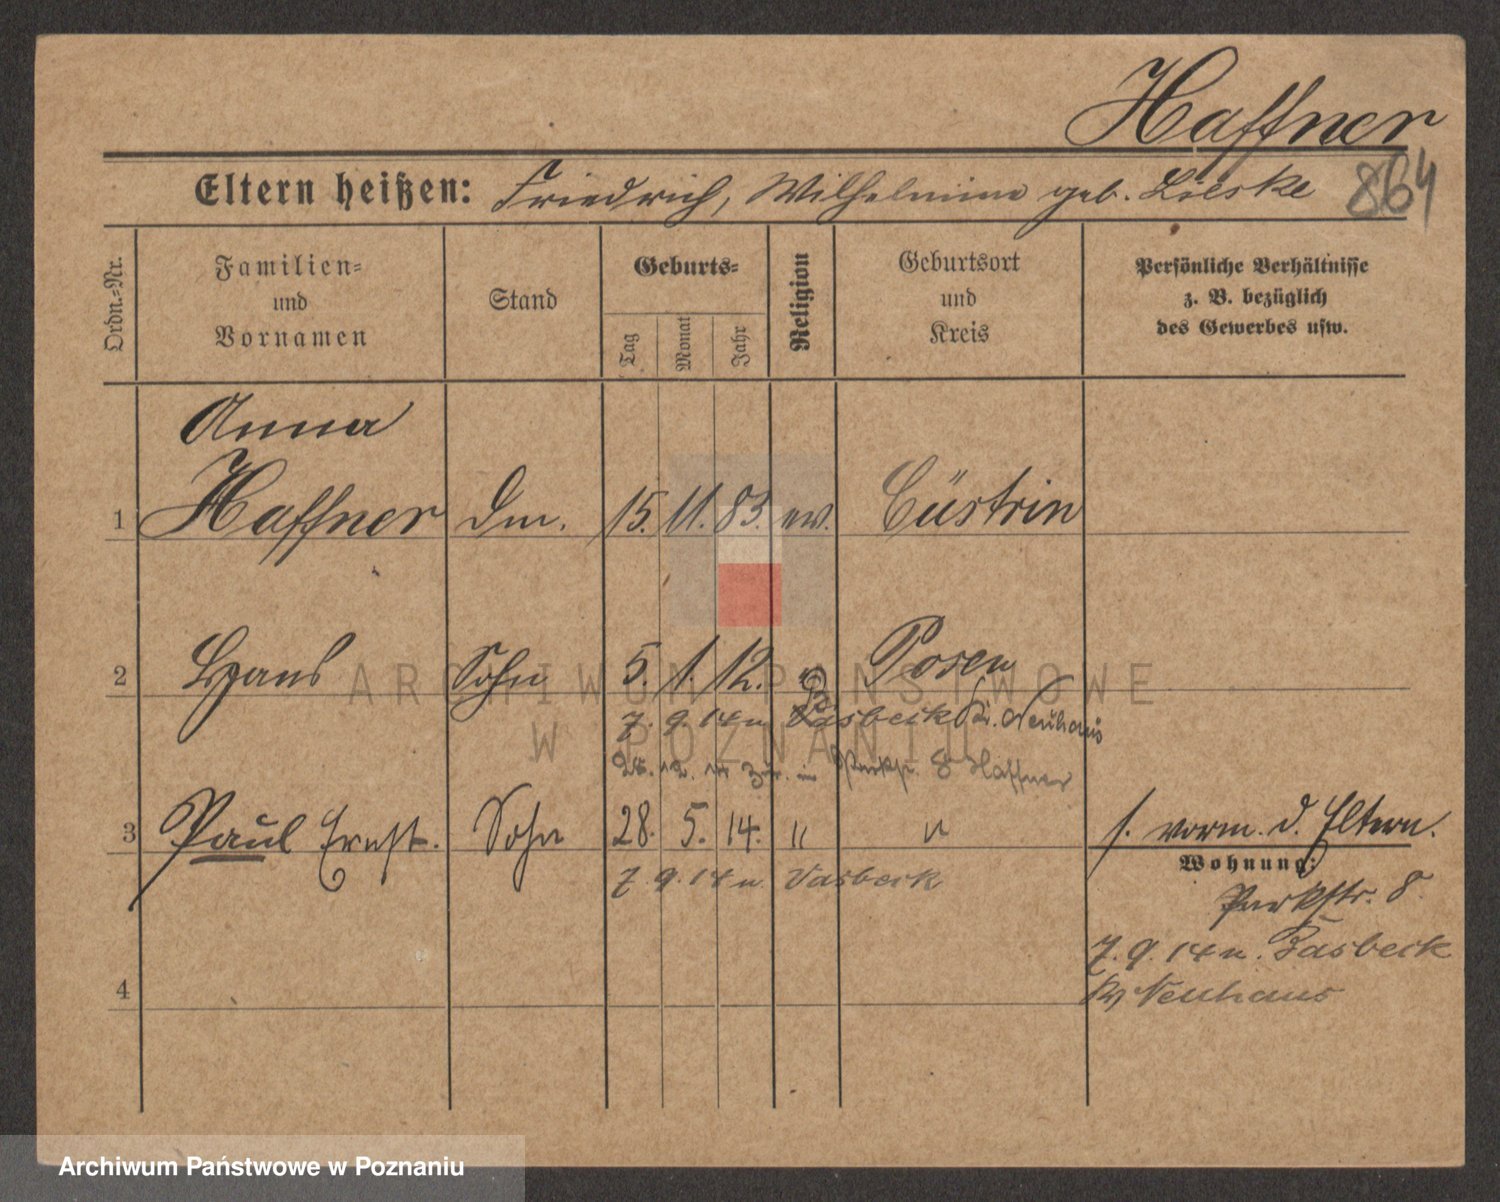 Haffner
Eltern heißen: Friedrich, Wilhelmine geb. Lieske 864
Ordn.=Nr.
Familien=
und
Vornamen
Stand
Geburts=
Tag
Monat
Jahr
Religion
Geburtsort
und
Kreis
Persönliche Verhältnisse
z. B. bezüglich
des Gewerbes usw.
Anna
1 Haffner 15. 11. 83. ev. Cüstrin
2 Hans Sohn 5. 1. 12. Posen
7. 9. 14 n Kr. Neuhaus
28. 12. 14 in Parkstr. 8 Haffner
3 Paul Ernst. Sohn 28. 5. 14. " " s. vorm. d. Eltern.
Wohnung:
7. 9. 14 n Vasbeck
Parkstr. 8
7. 9. 14 n.
Neuhaus
4
ARCHIWUM PAŃSTWOWE
W POZNANIU
Archiwum Państwowe w Poznaniu